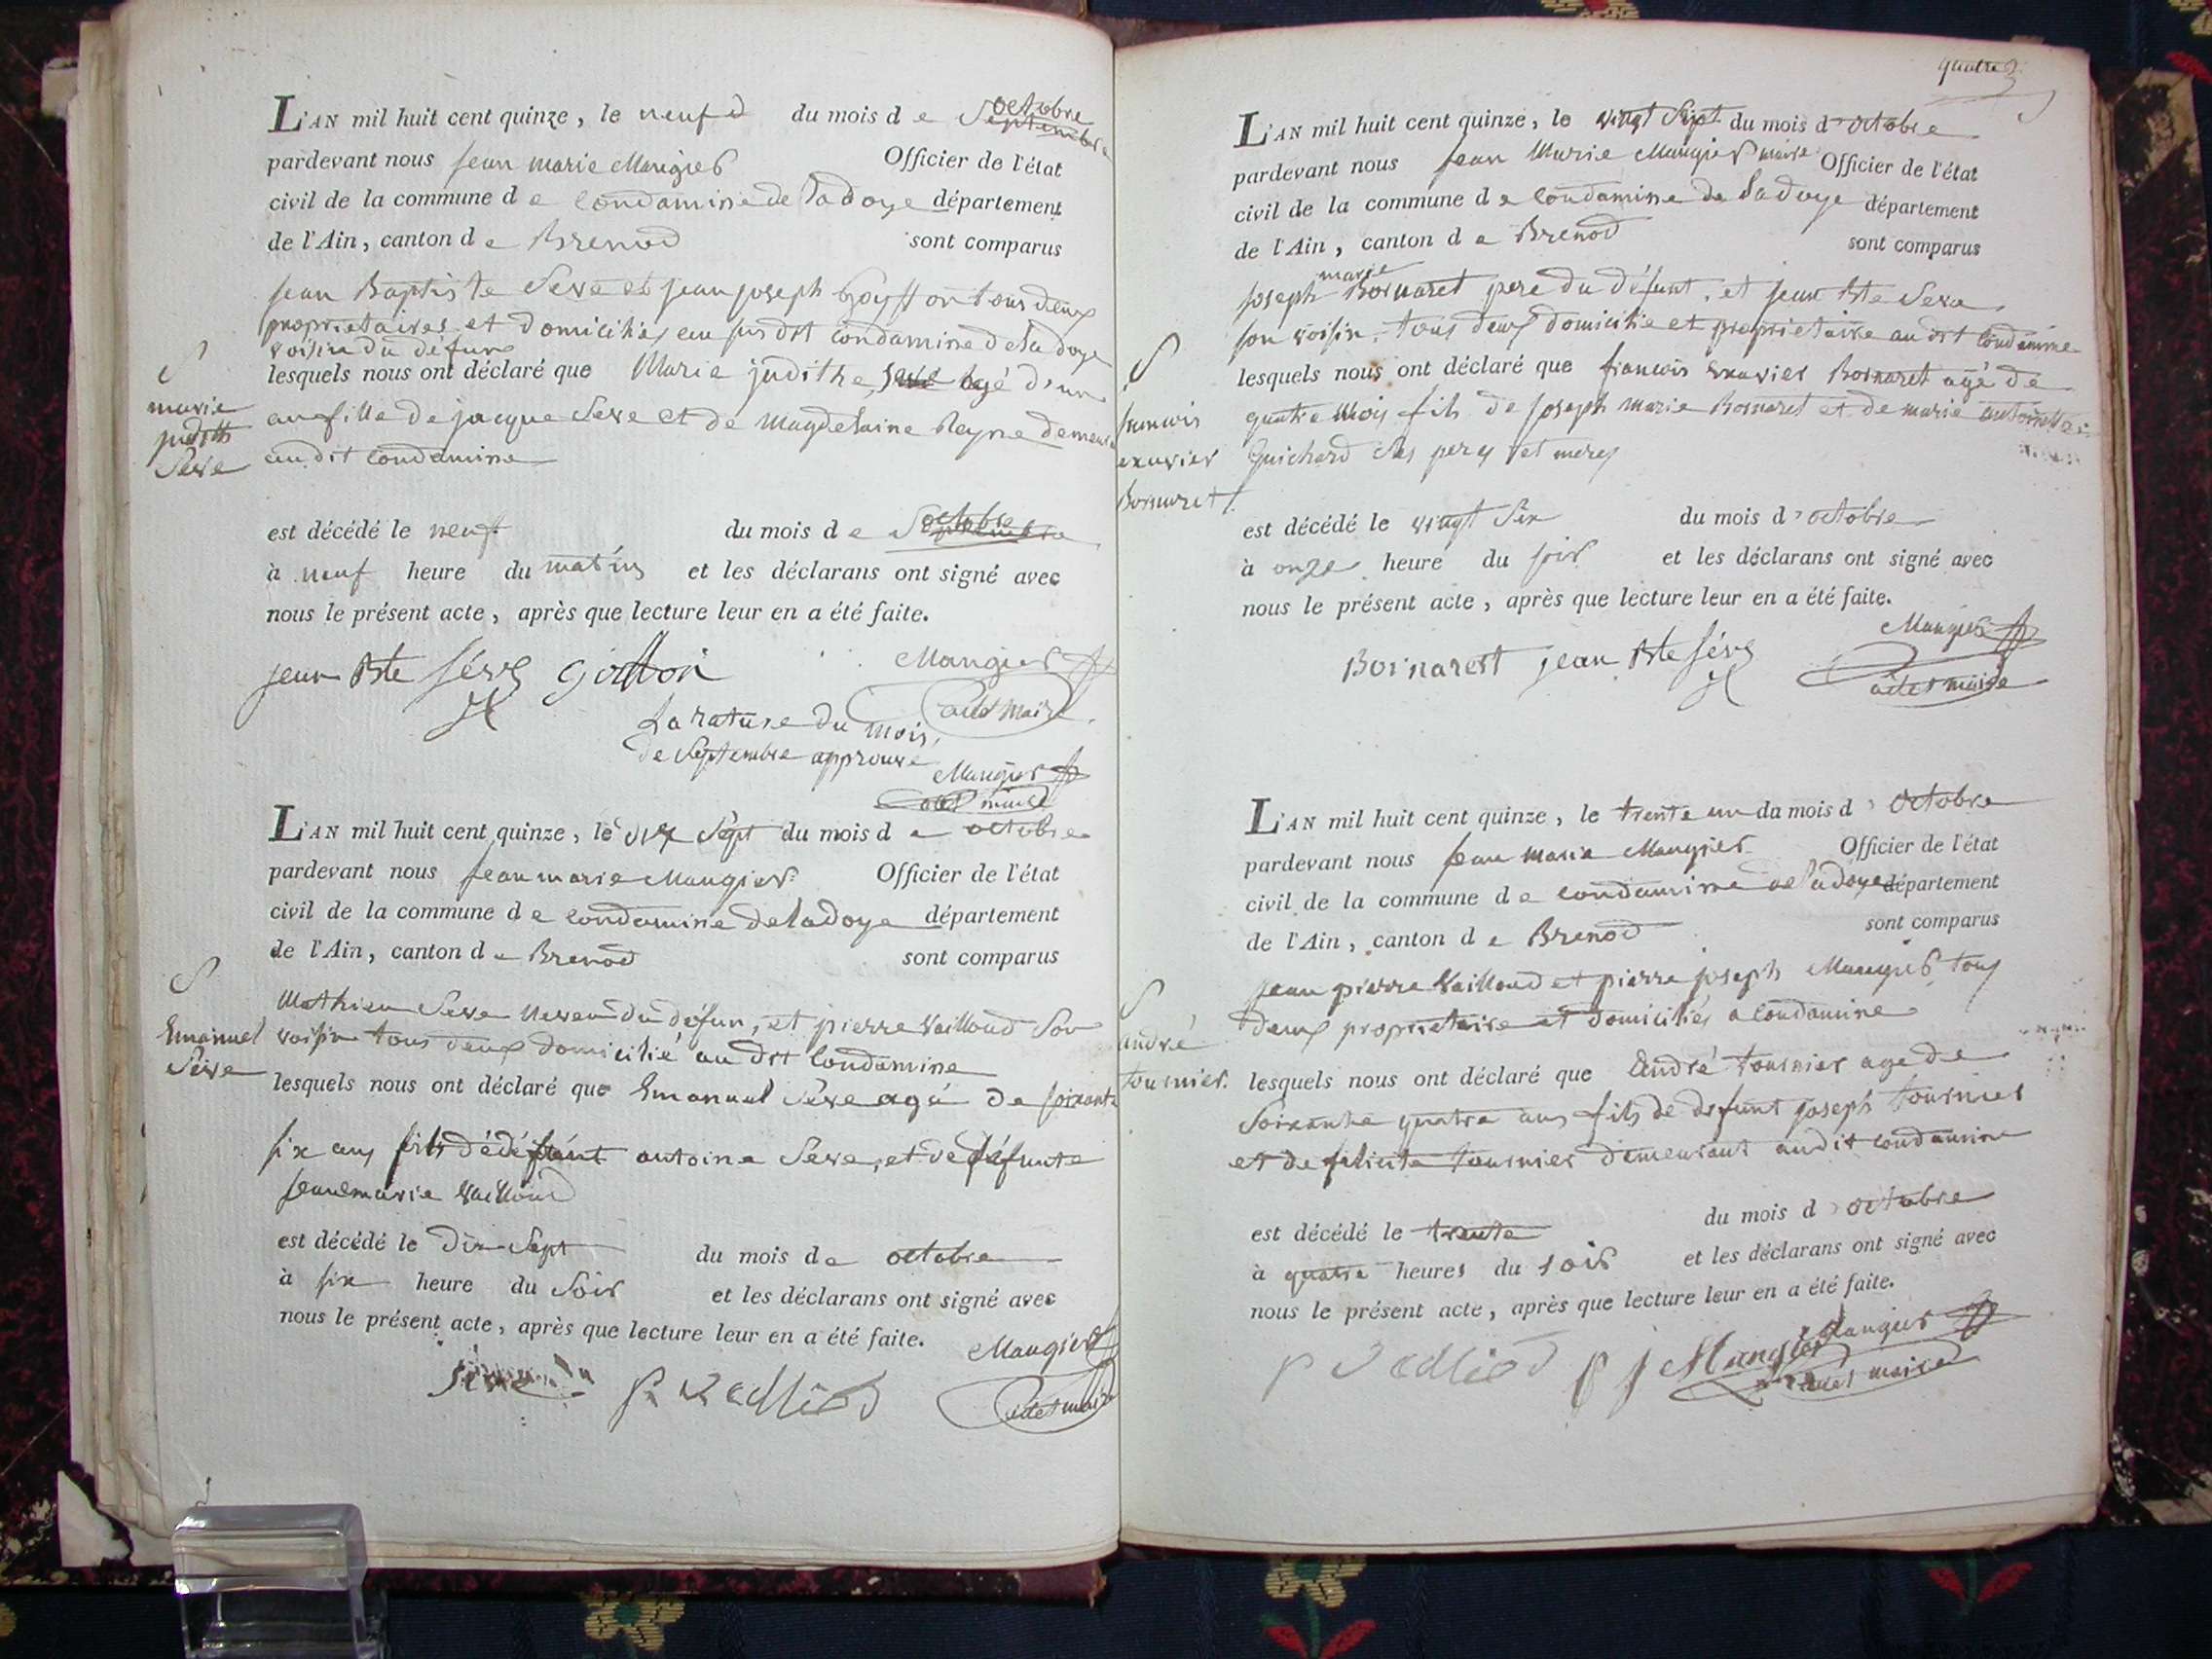 L'AN mil huit cent quinze, le neuf du mois de Septembre octobre
pardevant nous jean marie Mangier Officier de l'état
civil de la commune de Condamine de Ladoye département
de l'Ain, canton de Brenod sont comparus
jean Baptiste Seve et jean joseph tous deux
propriétaires et domiciliés au sus dit Condamine de Ladoye
voisin du défun
lesquels nous ont déclaré que Marie judithe Seve agé d'un
an fille de jacque Seve et de Magdelaine Reyne
au dit Condamine
marie
judith
Seve
est décédé le neuf du mois de Septembre octobre
à neuf heure du matin et les déclarans ont signé avec
nous le présent acte, après que lecture leur en a été faite.
jean Bte séve goiffon Mangier
adet Maire
La rature du mois
de Septembre approuvé
Mangier
adet maire
L'AN mil huit cent quinze, le dix Sept du mois de octobre
pardevant nous jean marie Mangier Officier de l'état
civil de la commune de Condamine de Ladoye département
de l'Ain, canton de Brenod sont comparus
Mathieu Seve neveu du défun, et pierre Vailloud Son
voisin tous deux domicilié au dit Condamine
Emanuel
Seve
lesquels nous ont déclaré que Emanuel Seve agé de soixante
six ans fils de défunt antoine Seve, et de défunte
jeanemarie Vailloud
est décédé le dix Sept du mois de octobre
à six heure du Soir et les déclarans ont signé avec
nous le présent acte, après que lecture leur en a été faite.
Mangier
Seve
adet maire
quatre
L'AN mil huit cent quinze, le vingt Sept du mois d'octobre
pardevant nous jean Marie Mangier maire Officier de l'état
civil de la commune de Condamine de Ladoye département
de l'Ain, canton de Brenod sont comparus
joseph marie Bornaret pere du défunt, et jean Bte Seve
son voisin, tous deux domicilié et propriétaire au dit Condamine
lesquels nous ont déclaré que francois exavier Bornaret agé de
quatre Mois fils de joseph marie Bornaret et de marie antoinette
Guichard Ses peres et meres
francois
exavier
Bornaret
est décédé le vingt Six du mois d'octobre
à onze heure du soir et les déclarans ont signé avec
nous le présent acte, après que lecture leur en a été faite.
Mangier
Bornarest jean Bte séve
adet maire
L'AN mil huit cent quinze, le trente un du mois d'octobre
pardevant nous jean marie Mangier Officier de l'état
civil de la commune de Condamine de Ladoye département
de l'Ain, canton de Brenod sont comparus
jean pierre Vailloud et pierre joseph Mangier tous
deux propriétaire et domiciliés a Condamine
andré
tournier
lesquels nous ont déclaré que André tournier age de
Soixante quatre ans fils de défunt joseph tournier
et de felicite tournier demeurant audit Condamine
est décédé le trente du mois d'octobre
à quatre heures du soir et les déclarans ont signé avec
nous le présent acte, après que lecture leur en a été faite.
p j Mangier Mangier
adet maire